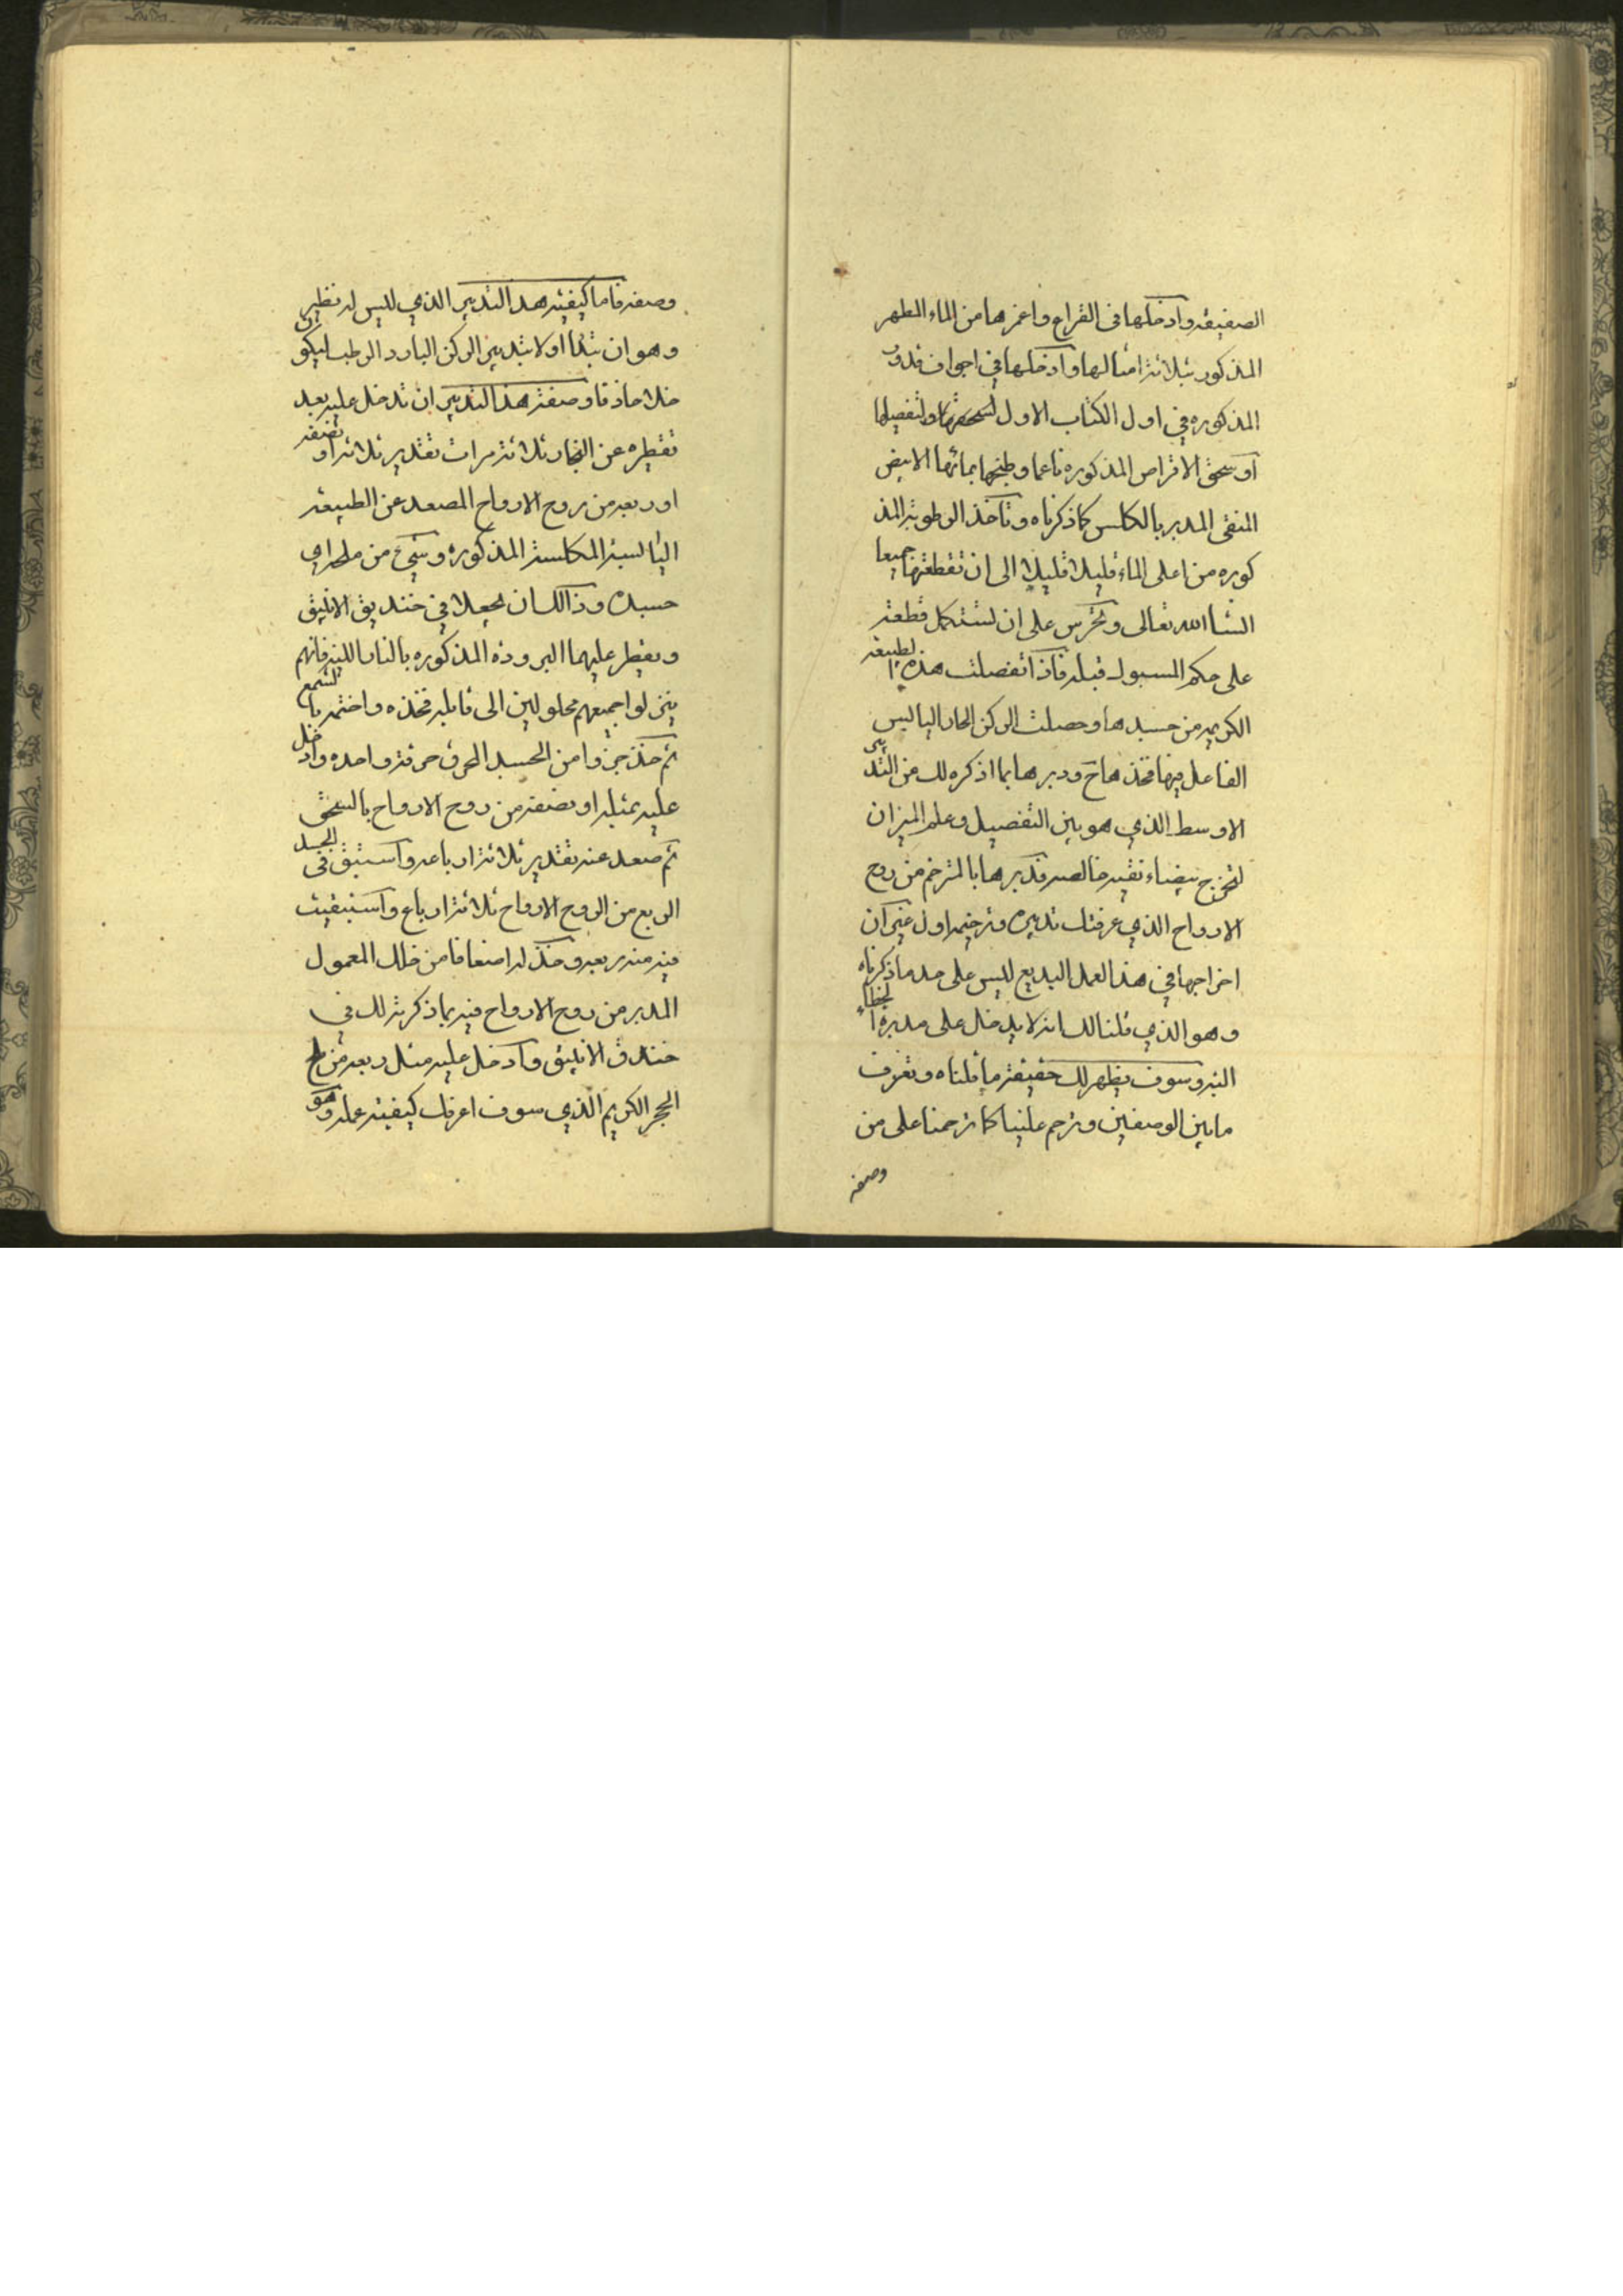 الصفيقه وادخلها في القراع واغمرها من الماء المطهر
المذكور بثلاثة امثالها وادخلها في اجواف قدور
المذكوره في اول الكتاب الاول ولتفصيلها
او سحق الاقراص المذكوره ناعما وطبخها بمائها الابيض
المنقى المدبر بالكلس كما ذكرناه وتاخذ الرطوبة المذ
كوره من اعلى الماء قليلا قليلا الى ان تقطفها جميعا
انشا الله تعالى وتحرس على ان تستكمل قطفه
على حكم المسبوك قبله فاذا انفصلت هذه الطبيعة
الكريمه من جسدها وحصلت الركن الحار اليابس
الفاعل فيها فخذها ودبرها بما اذكره لك من التدبير
الاوسط الذي هو بين التفصيل وعلم الميزان
لتخرج بيضاء نقيه خالصه فدبرها بالمترخم من روح
الارواح الذي عرفتك تدبيره وترخيمه اول غير ان
اخراجها في هذا العمل البديع ليس على حد ما ذكرناه
وهو الذي قلنا لك انه لا يدخل على مدبره الخطاء
البته وسوف يظهر لك حقيقة ما قلناه وتعرف
ما بين الوصفين وترحم علينا كما ترحمنا على من
وصفه
وصفه فاما كيفية هذا التدبير الذي ليس له نظير
وهو ان تبدا اولا بتدبير الركن البارد الرطب ليكون
خلا حاذقا وصفة هذا التدبير ان تدخل عليه بعد
تقطيره عن النجار ثلاثة مرات تقدير ثلاثة او نصفه
او ربعه من روح الارواح المصعد عن الطبيعه
اليابسه المكلسة المذكوره وشيء من ملح اي
جسده وذالك ان يجعلا في خنديق الانبيق
ويقطر عليهما البروده المذكوره بالنار اللينه فانهم
ينزلوا جميعهم محلولين الى قابله فخذه واختمه بالشمع
ثم خذ جزوا من الجسد المحرق حرقة واحده وادخل
عليه بمثله او نصفه من روح الارواح بالسحق
ثم صعد عنه تقدير ثلاثة ارباعه واستبق في الجسد
الربع من الروح الارواح ثلاثة ارباع واستبقيت
فيه منه ربعه وخذ له اضعافا من خلك المعمول
المدبر من روح الارواح فيه بما ذكرته لك في
خندق الانبيق وادخل عليه مثل ربعه من ملح
الحجر الكريم الذي سوف اعرفك كيفية عمله وهو